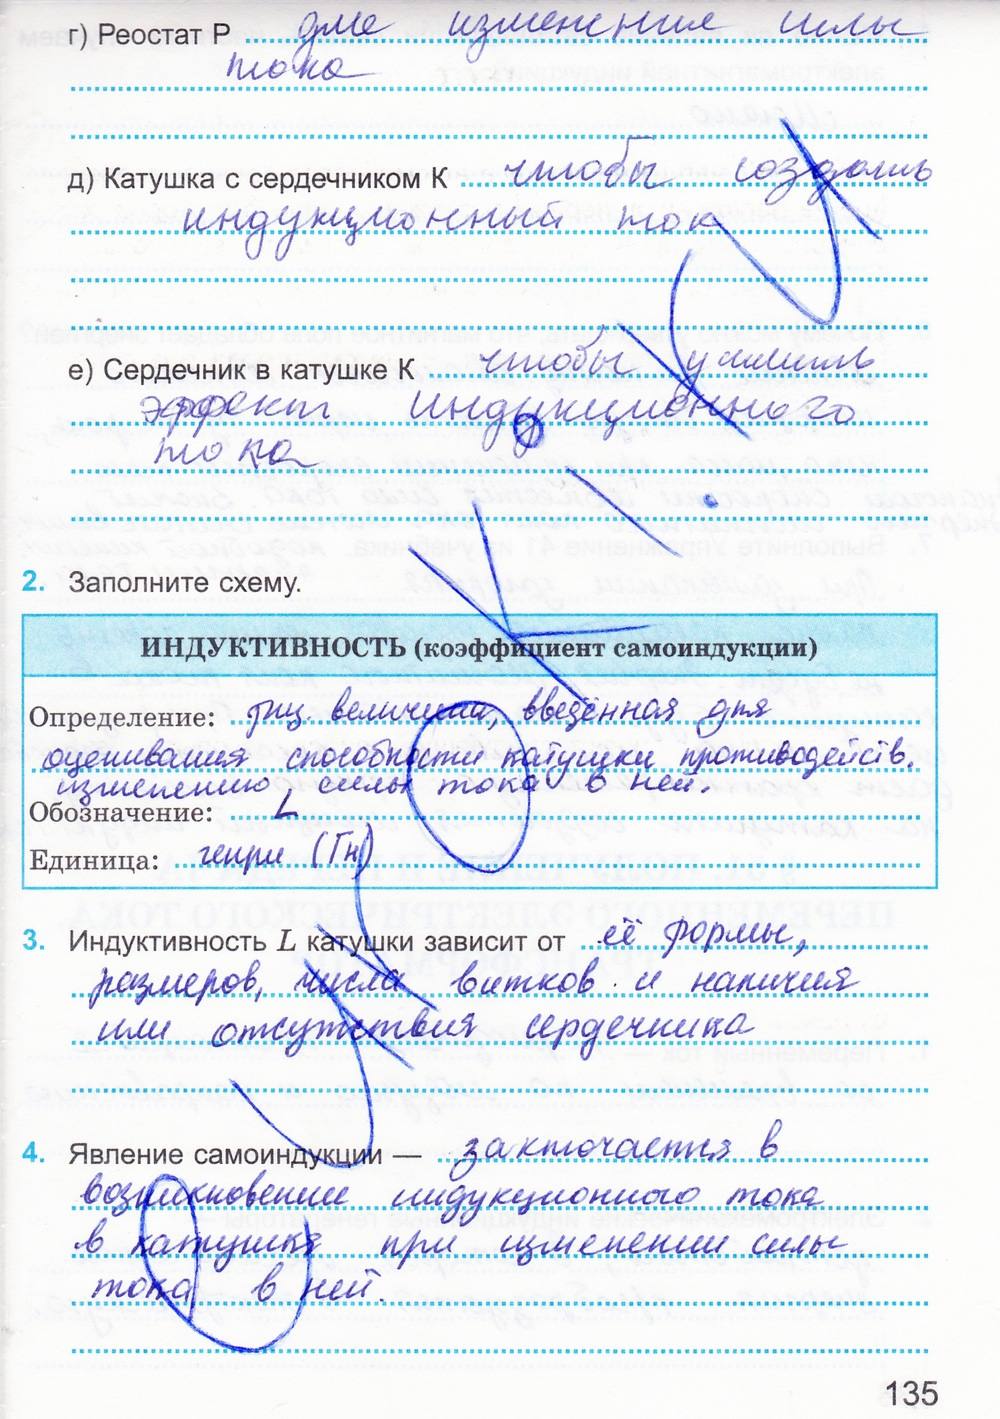 г) Реостат Р для изменения силы
тока
д) Катушка с сердечником К чтобы создать
индукционный ток
е) Сердечник в катушке К чтобы усилить
эффект индукционного
тока
2. Заполните схему.
ИНДУКТИВНОСТЬ (коэффициент самоиндукции)
Определение: физ. величина, введённая для
оценивания способности катушки противодейств.
изменению силы тока в ней.
Обозначение: L
Единица: генри (Гн)
3. Индуктивность L катушки зависит от её формы,
размеров, числа витков и наличия
или отсутствия сердечника
4. Явление самоиндукции — заключается в
возникновении индукционного тока
в катушке при изменении силы
тока в ней.
135